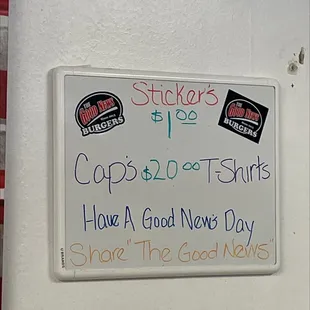 THE
Good News
BURGERS
Sticker's
$1.00
THE
Good News
BURGERS
Cap's $20.00 T-Shirts
Have A Good New's Day
Share "The Good News"